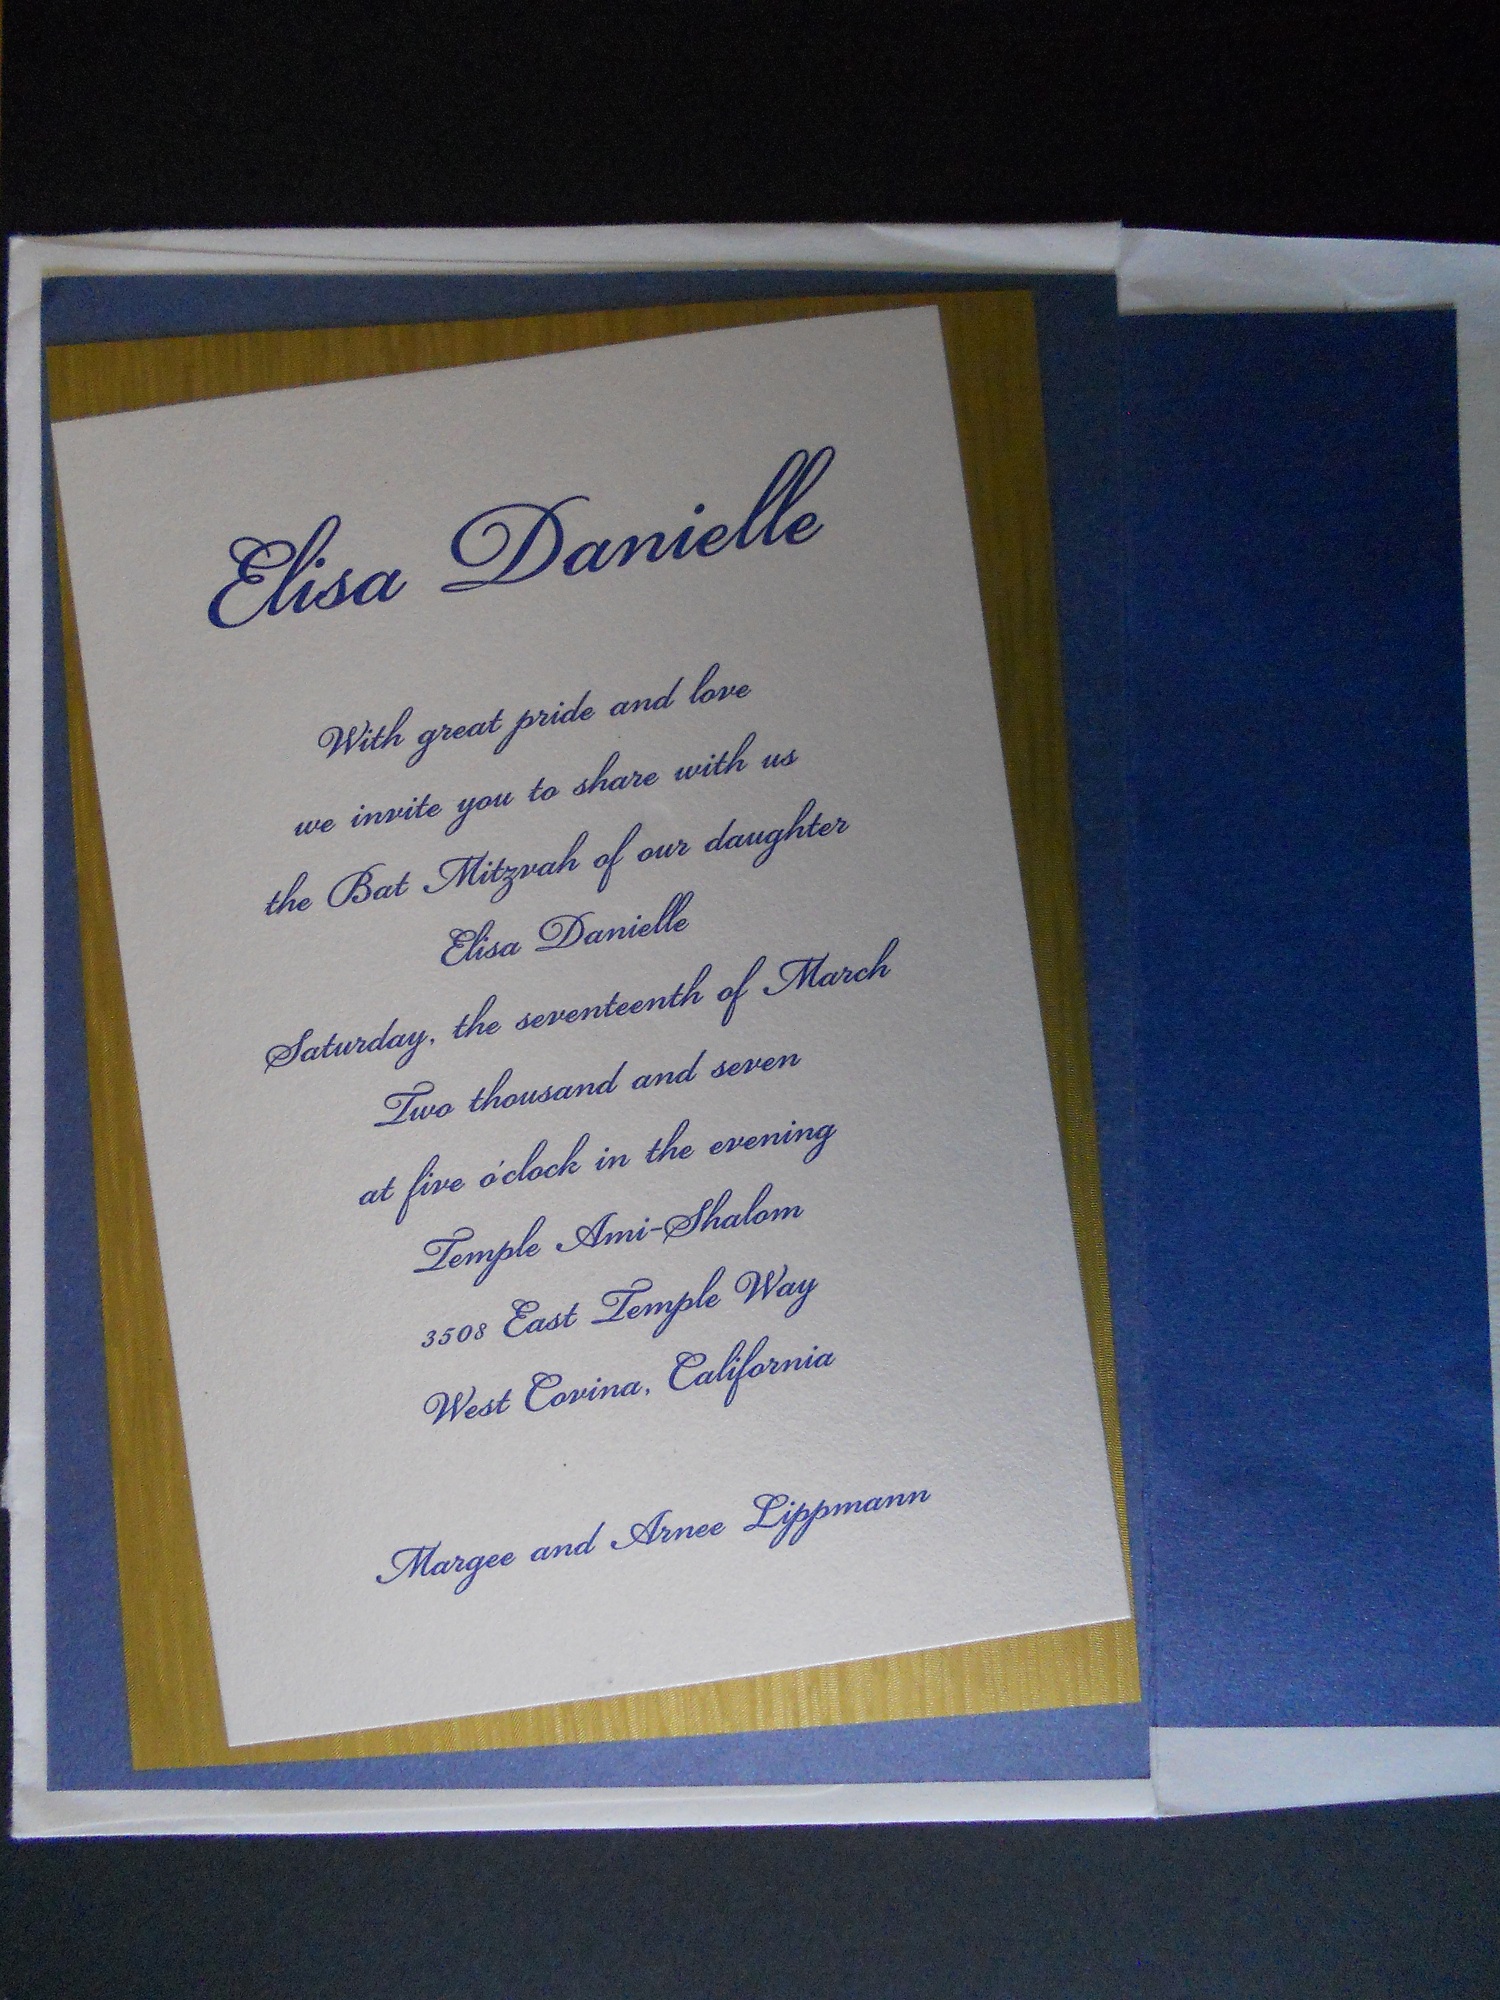 Elisa Danielle
With great pride and love
we invite you to share with us
the Bat Mitzvah of our daughter
Elisa Danielle
Saturday, the seventeenth of March
Two thousand and seven
at five o'clock in the evening
Temple Ami-Shalom
3508 East Temple Way
West Covina, California
Margee and Arnee Lippmann